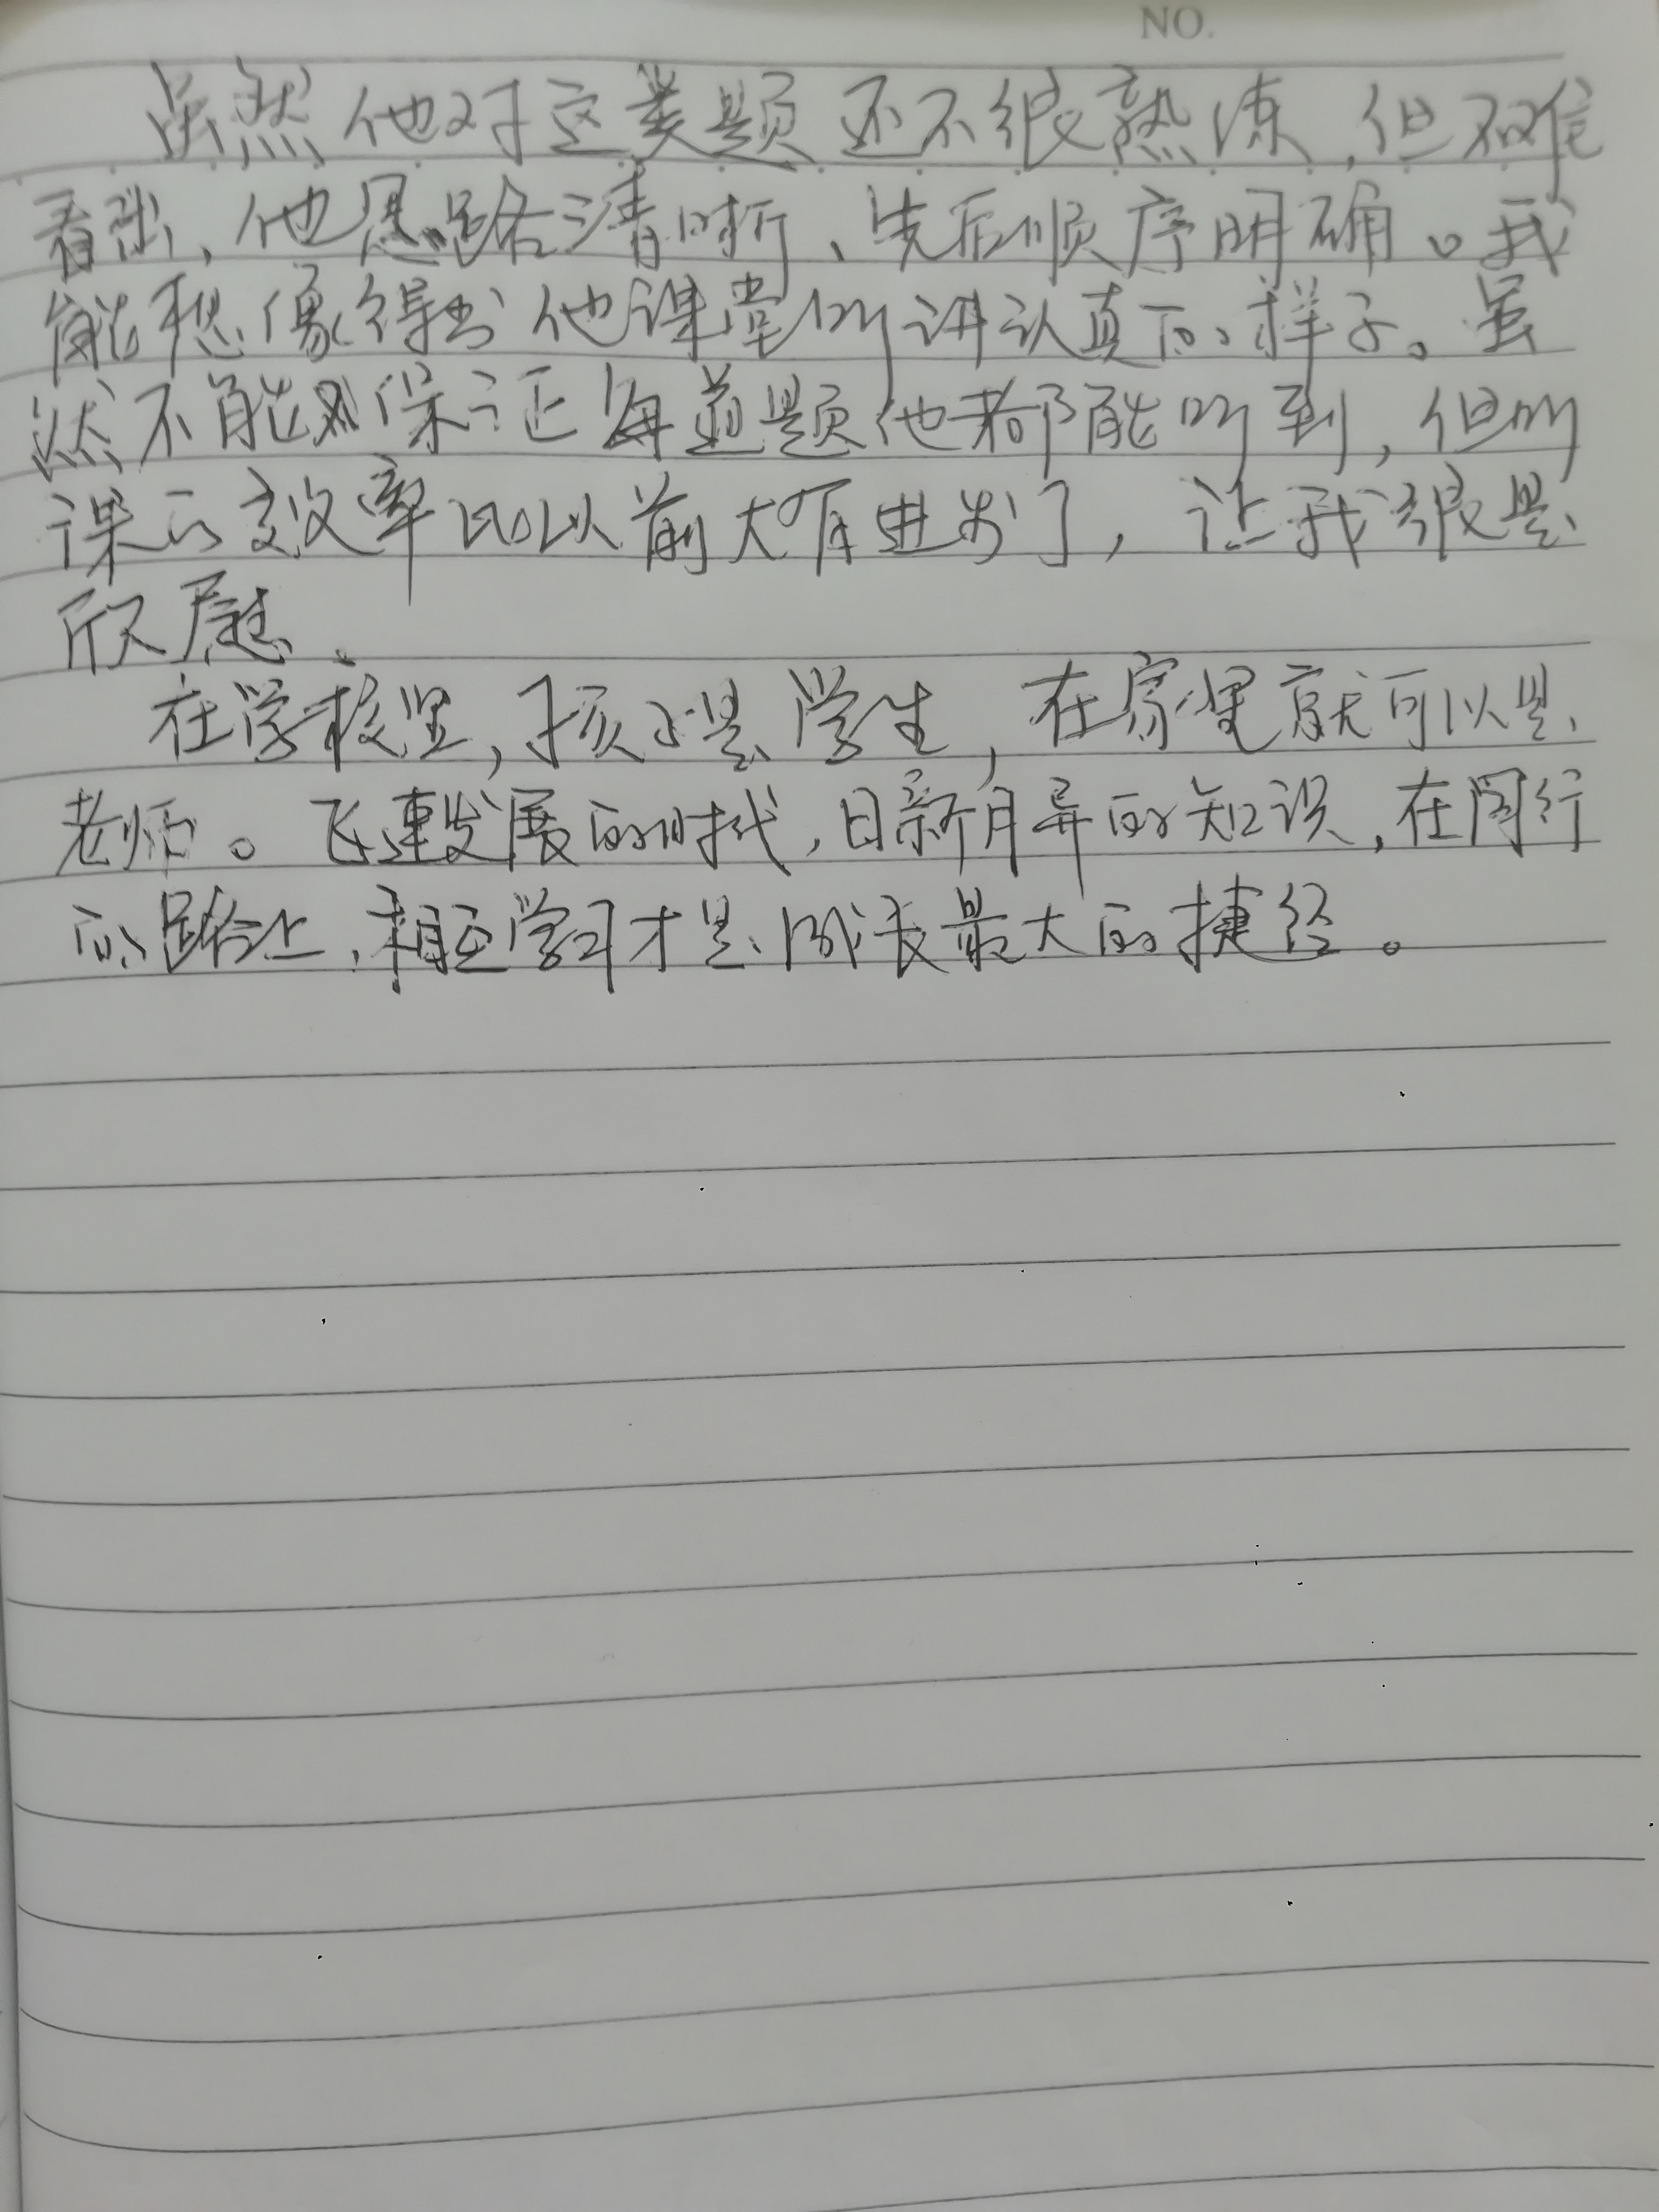 NO.
虽然他对这类题还不很熟练,但不难
看出,他思路清晰、先后顺序明确。我
能想像得出他课堂听讲认真的样子。虽
然不能保证每道题他都能听到,但听
课的效率比以前大有进步了,让我很是
欣慰、
在学校里,孩子是学生,在家里就可以是
老师。飞速发展的时代,日新月异的知识,在同行
的路上,相互学习才是成长最大的捷径。